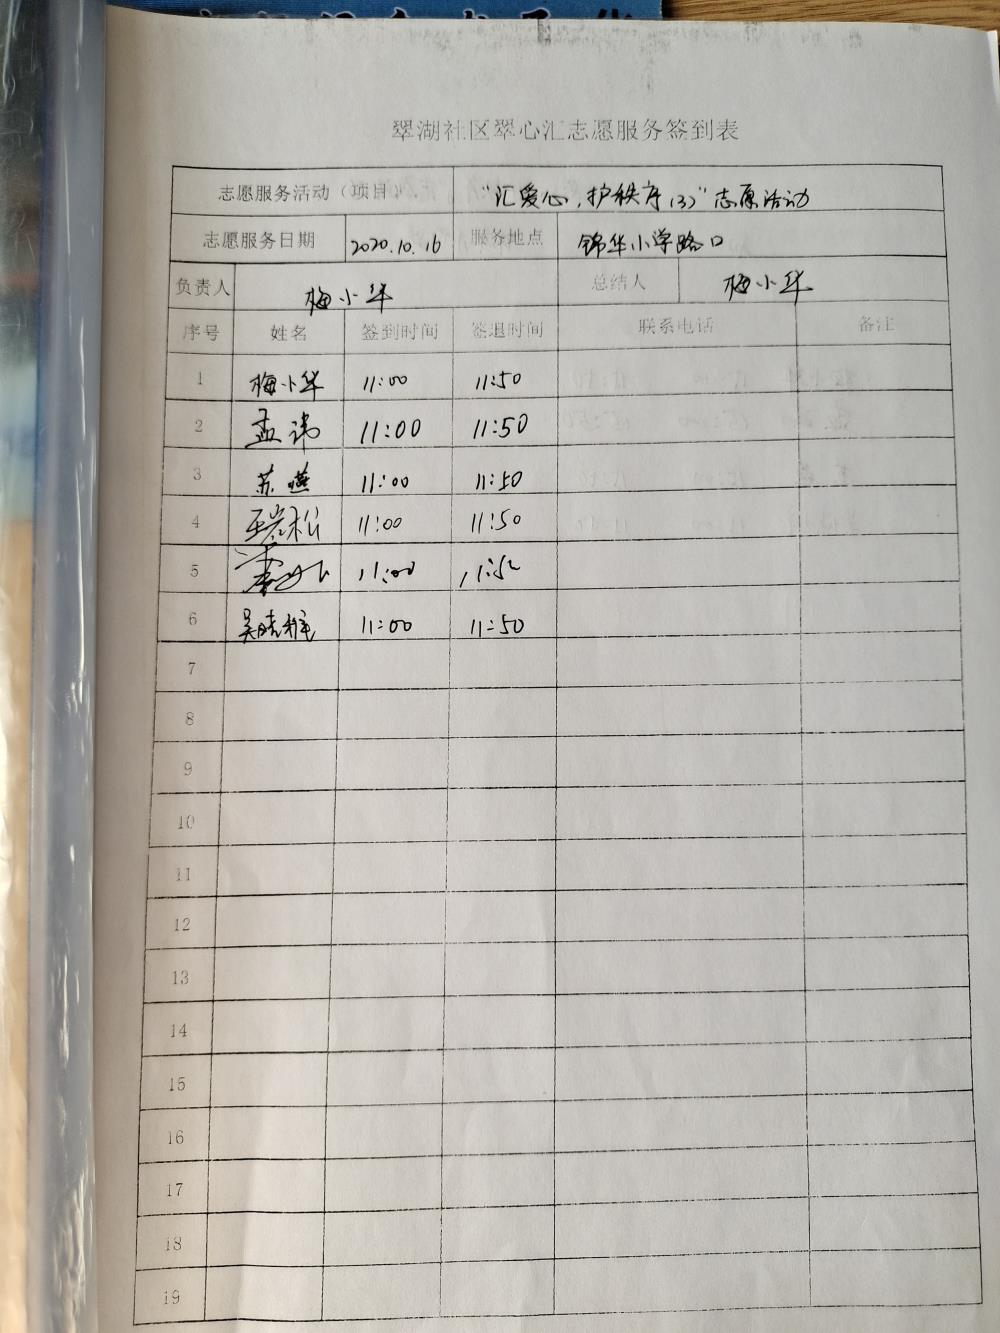 翠湖社区翠心汇志愿服务签到表
志愿服务活动（项目） “汇爱心，护秩序（3）”志愿活动
志愿服务日期 2020.10.16 服务地点 锦华小学路口
负责人 梅小华 总结人 梅小华
序号 姓名 签到时间 签退时间 联系电话 备注
1 梅小华 11:00 11:50
2 孟玮 11:00 11:50
3 苏燕 11:00 11:50
4 王岩松 11:00 11:50
5 11:00 11:50
6 吴晓 11:00 11:50
7
8
9
10
11
12
13
14
15
16
17
18
19